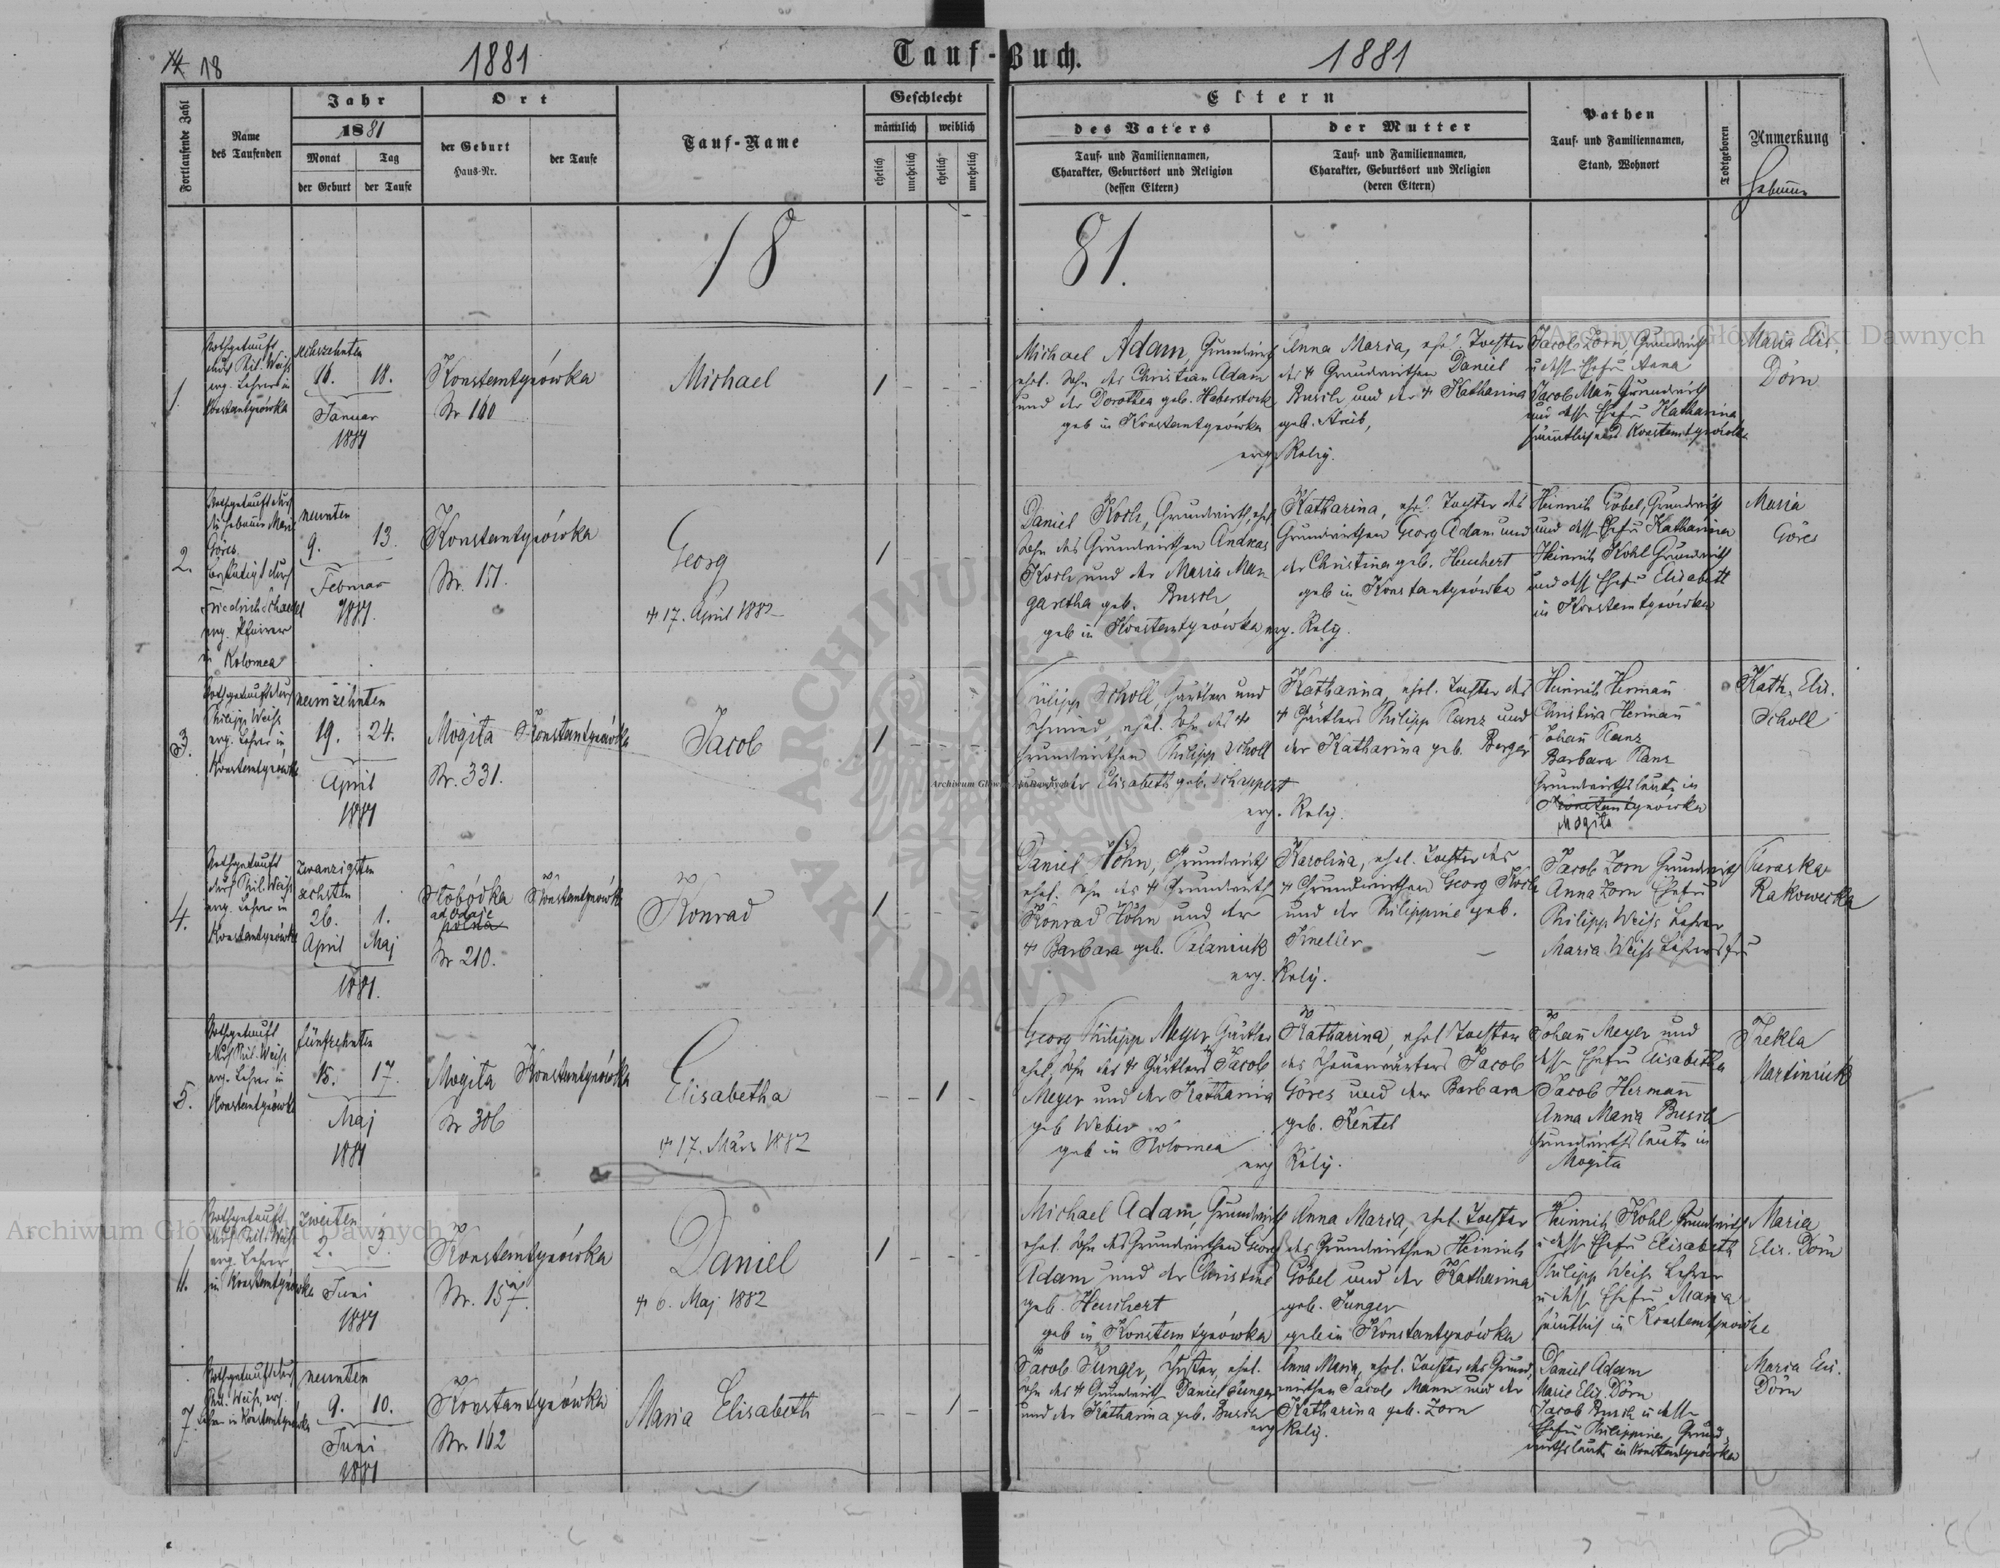 14 18
1881
Tauf-Buch.
1881
Fortlaufende Zahl
Name
des Taufenden
Jahr
1881
Monat
Tag
der Geburt
der Taufe
Ort
der Geburt
Haus-Nr.
der Taufe
Tauf-Name
Geschlecht
männlich
weiblich
ehelich
unehelich
ehelich
unehelich
Eltern
des Vaters
Tauf- und Familiennamen,
Charakter, Geburtsort und Religion
(dessen Eltern)
der Mutter
Tauf- und Familiennamen,
Charakter, Geburtsort und Religion
(deren Eltern)
Pathen
Tauf- und Familiennamen,
Stand, Wohnort
Todtgeboren
Anmerkung
18
81.
1.
Nothgetauft
durch Phil. Weiss
evg. Lehrer in
Konstantynówka
sechszehnten
16. 18.
Januar
1881
Konstantynówka
Nr 160
Michael
1 - - -
Michael Adam, Grundwirth
ehel. Sohn des Christian Adam
und der Dorothea geb. Haberstock
geb in Konstantynówka
evg.
Anna Maria, ehel. Tochter
des + Grundwirthen Daniel
Busch und der + Katharina
geb.
Relig.
Jacob Zorn Grundwirth
u dess Ehefr Anna
Jacob Mann Grundwirth
und dess Ehefr Katharina
sämmtlich aus Konstantynówka
Maria Elis.
Dörn
2.
Nothgetauft durch
die Hebamme Maria
Göres
bestätigt durch
Friedrich
evg. Pfarrer
in Kolomea
neunten
9. 13.
Februar
1881.
Konstantynówka
Nr. 151.
Georg
+ 17. April 1882
1
Daniel Koch, Grundwirth, ehel
Sohn des Grundwirthen Andreas
Koch und der Maria Mar-
garetha geb. Busch
geb in Konstantynówka evg.
Katharina, ehel. Tochter des
Grundwirthen Georg Adam und
der Christina geb. Heuchert
geb in Konstantynówka
Relig.
Heinrich Göbel, Grundwirth
und dess Ehefr Katharina
Heinrich Kohl Grundwirth
und dess Ehefr Elisabeth
in Konstantynówka
Maria
Göres
3.
Nothgetauft durch
Philipp Weiss
evg. Lehrer in
Konstantynówka
neunzehnten
19. 24.
April
1881
Mogiła
Nr. 331.
Konstantynówka
Jacob
1 - - -
Philipp Scholl, Gärtler und
Schmied, ehel. Sohn des +
Grundwirthen Philipp Scholl
und der Elisabeth geb. Schappert
evg.
Katharina, ehel. Tochter des
+ Gärtlers Philipp Kanz und
der Katharina geb. Berger
Relig.
Heinrich Hermann
Christina Hermann
Johann Kanz
Barbara Kanz
Grundwirthsleute in
Konstantynówka
Mogiła
Kath. Elis.
Scholl
4.
Nothgetauft
durch Phil. Weiss
evg. Lehrer in
Konstantynówka
zwanzigsten
sechsten
26. 1.
April Maj
1881.
Słobódka
polna
Nr 210.
Konstantynówka
Konrad
1 - - -
Daniel Höhn, Grundwirth
ehel. Sohn des + Grundwirth
Konrad Höhn und der
+ Barbara geb. Palaniuk
evg.
Karolina, ehel. Tochter des
+ Grundwirthen Georg Koch
und der Philippine geb.
Relig.
Jacob Zorn Grundwirth
Anna Zorn Ehefr
Philipp Weiss Lehrer
Maria Weiss Lehrersfr
Paraska
Rakowecka
5.
Nothgetauft
durch Phil. Weiss
evg. Lehrer in
Konstantynówka
fünfzehnten
15. 17.
Maj
1881
Mogiła
Nr 306
Konstantynówka
Elisabetha
+ 17. März 1882
- - 1 -
Georg Philipp Meyer, Gärtler
ehel. Sohn des + Gärtlers Jacob
Meyer und der Katharina
geb Weber
geb in Kolomea
evg
Katharina, ehel Tochter
des Jacob
Göres und der Barbara
geb. Kentel
Relig.
Johann Meyer und
dess Ehefr Elisabetha
Jacob Hermann
Anna Maria Busch
Grundwirthsleute in
Mogiła
Thekla
Martiniuk
Nothgetauft
durch Phil. Weiss
evg. Lehrer
in Konstantynówka
zweiten
2. 3.
Juni
1881
Konstantynówka
Nr. 157.
Daniel
+ 6. Maj 1882
1 - - -
Michael Adam, Grundwirth
ehel. Sohn des Grundwirthen Georg
Adam und der Christine
geb. Heuchert
geb in Konstantynówka
Anna Maria, ehel. Tochter
des Grundwirthen Heinrich
Göbel und der Katharina
geb. Junger
geb in Konstantynówka
Heinrich Kohl Grundwirth
u dess Ehefr Elisabeth
Philipp Weiss Lehrer
u dess Ehefr Maria
sämmtlich in Konstantynówka
Maria
Elis. Dörn
7.
Nothgetauft durch
Phil. Weiss, evg.
Lehrer in Konstantynówka
neunten
9. 10.
Juni
1881
Konstantynówka
Nr. 162
Maria Elisabeth
- - 1 -
Jacob Junger, ehel.
Sohn des + Grundwirth Daniel Junger
und der Katharina geb. Busch
evg
Anna Maria, ehel. Tochter des Grund-
wirthen Jacob Mann und der
Katharina geb. Zorn
Relig.
Daniel Adam
Marie Elis. Dörn
Jacob Busch u dess
Ehefr Philippine, Grund-
wirthsleute in Konstantynówka
Maria Elis.
Dörn
Archiwum Główne Akt Dawnych
Archiwum Główne Akt Dawnych
Archiwum Główne Akt Dawnych